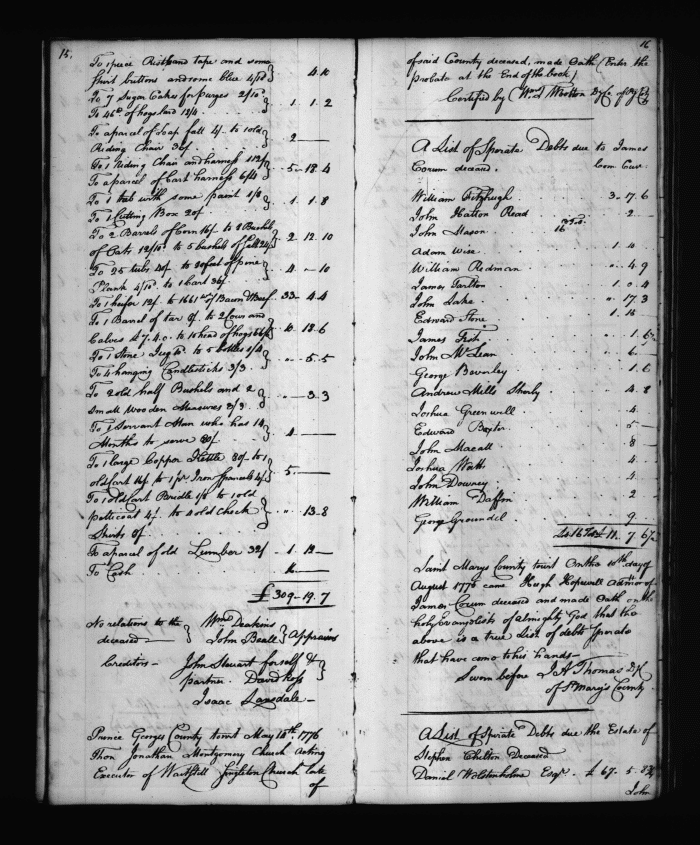 15.
To 1 piece Ristband tape and some
Shirt buttons and some blue 4/10 } 4. 10
To 7 Sugar Cakes for purges 2/10
To 46 lb. of hogs lard 12/4 } 1. 1. 2
To a parcel of Soap fatt 4/. to 1 old
Riding Chair 36/. } 2 —
To 1 Riding Chair and harness 112/
To a parcel of Cart harness 6/4 } 5 - 18. 4
To 1 tub with some paint 1/8
To 1 Cutting Box 20/. } 1. 1. 8
To 2 Barrels of Corn 16/. to 8 Bushels
of Oats 12/10 to 5 bushels of Salt 24/. } 2. 12. 10
To 25 tubs 40/. to 30 feet of pine
Plank 4/10 to 1 Cart 36/. } 4. - 10
To 1 heifer 12/. to 1661 lb of Bacon & Beef 33 - 4. 4
To 1 Barrel of tar 9/. to 2 Cows and
Calves £7.4.0. to 10 head of hogs 66/. } 10. 18. 6
To 1 Stone Jug to 5 bottles 1/4
To 4 hanging Candlesticks 3/3 } „ 5. 5
To 2 old half Bushels and 2
Small Wooden Measures 3/3 } „ 3. 3
To 1 Servant Man who has 14
Months to serve 80/. } 4 —
To 1 large Copper Kettle 80/. to 1
old Cart 16/. to 1 pr. Iron 4/. } 5. —
To 1 old Cart Bridle 1/8 to 1 old
petticoat 4/. to 4 old Check
Shirts 8/. } „ 13. 8
To a parcel of old Lumber 32/ - 1. 12 —
To Cash
£ 309 - 19. 7
No relations to the deceased — } Wm. Deakins
John Beall } Apprais
Creditors — John Stewart for self &
partner. David Ross
Isaac Lansdale —
Prince Georges County towit May 18th. 1776
Then Jonathan Montgomery Church Acting
Executor of Singleton Church late
of
16
of said County deceased, made Oath (Enter the
probate at the End of the book)
Certified by Wm. T Wootton Dy Co. of Py. Cty
A List of Sperate Debts due to James
Corum deceased. Com Cur:
William Fitzhugh 3 - 17. 6
John Hatton Read . 2 —
John Mason
Adam Wise. 1. 4
William Redman . „ 4. 9
James Tarlton 1. 0. 4
John Lake „ 17. 3
Edward Stone 1. 16
James Fish 1. 6
John McLean . 6 —
George Beverley . 1. 6
Andrew Mills Sherly . 4. 8
Joshua Greenwell . 4.
Edward Bexter 5 —
John Macall . 8
Joshua Watt 4
John Downey 4
William Daffon 2
George Groundel 9
11. 7. 6
Saint Marys County towit On the 10th. day of
August 1776 came Hugh Hopewell Admor of
James Corum deceased and made Oath on the
holy Evangelists of almighty God that the
above is a true List of debts Sperate
that have come to his hands —
Sworn before J A Thomas
of St Mary's County
A List of Sperate Debts due the Estate of
Stephen Chilton Deceased
Daniel Wolstenholme Esqr. £ 67. 5.
John